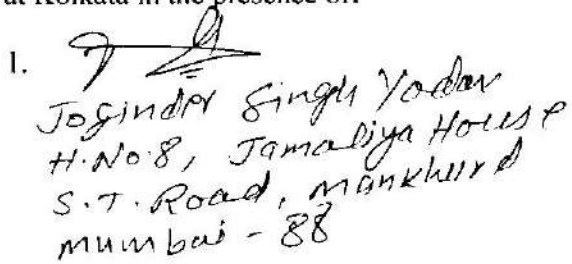 at Kolkata in the presence of:
1.
Joginder Singh Yadav
H.No.8, Jamaliya House
S.T. Road, Mankhurd
Mumbai - 88